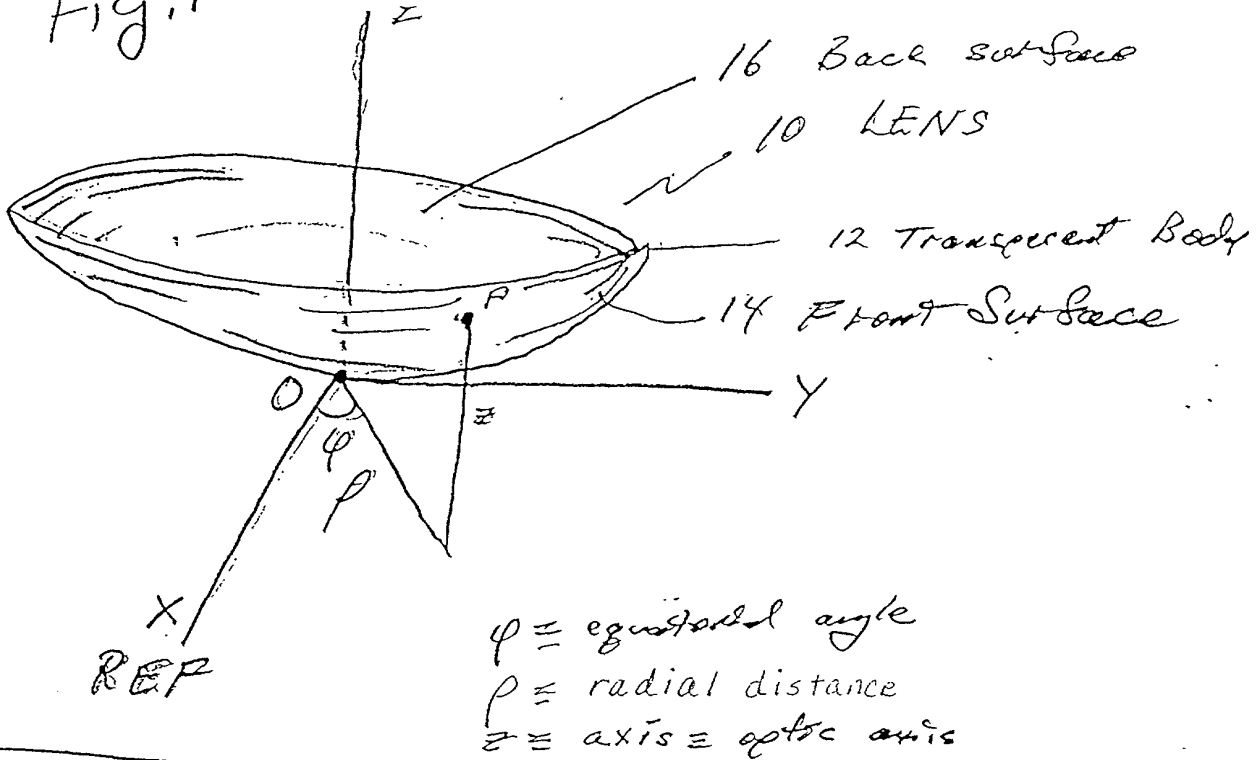 Fig. 1
z
16 Back surface
10 LENS
12 Transparent Body
14 Front Surface
P
O
Y
z
φ
ρ
X
REF
φ ≡ equatorial angle
ρ ≡ radial distance
z ≡ axis ≡ optic axis